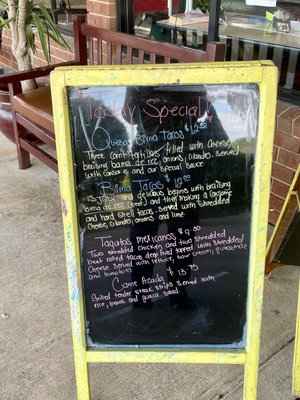 Today Special
Quesa Birria Tacos $12.00
Three corn tortillas filled with cheese,
braising birria de rez, onions, cilantro. Served
with consome and our special sauce
Birria Tacos $12.00
is juicy and delicious begins with braising
birria de rez (beef) and then making a consome
and hard shell tacos served with shredded
cheese, cilantro, onions and lime
Taquitos mexicanos $9.00
Two shredded chicken and two shredded
beef rolled tacos deep fried topped with shredded
cheese served with lettuce, sour cream, guacamole
and tomatoes
Carne Asada $13.75
Grilled tender steak strips served with
rice, beans and guaca salad